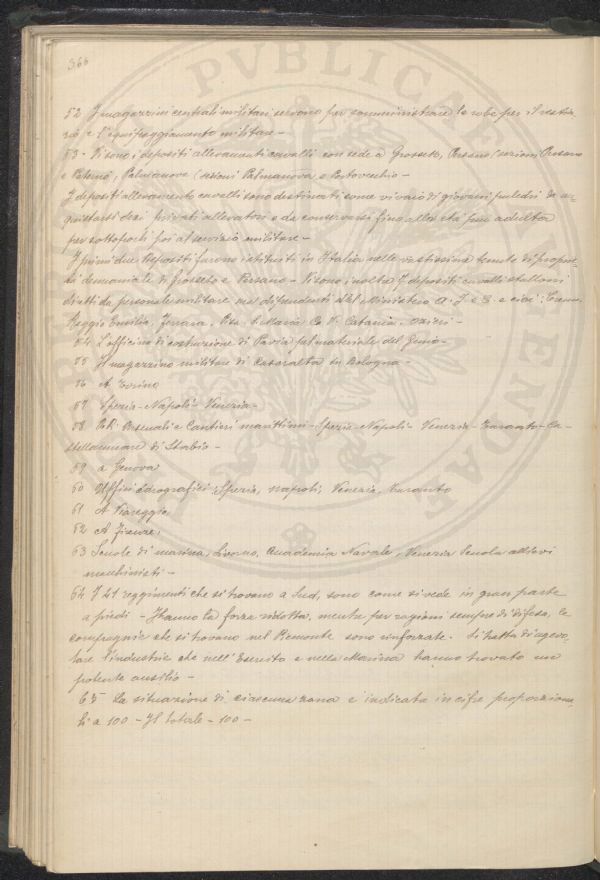 366
PVBLICAE
52 I magazzini centrali militari servono per somministrare le robe per il vestia-
rio e l'equipaggiamento militare -
53 - Vi sono i depositi allevamenti cavalli con sede a Grosseto, Persano (sezioni Persano
e Palmanova (sezioni Palmanova e Portovecchio -
I depositi allevamento cavalli sono destinati come vivaio di giovani puledri da ac-
quistarsi dai privati allevatori e da conservarsi fino alla età più adulta
per sottoporli poi al servizio militare -
I primi due depositi furono istituiti in Italia nelle vastissime tenute di proprie-
tà demaniale di Grosseto e Persano - Vi sono inoltre 7 depositi cavalli stalloni
diretti da personale militare ma dipendenti dal Ministero A. I. e C. e cioè: Crema
Reggio Emilia, Ferrara, Pisa S. Maria C. V. Catania - Ozieri -
54 L'officina di costruzione di Pavia pel materiale del Genio -
55 Il magazzino militare di Casaralta in Bologna -
56 A Torino
57 Spezia - Napoli - Venezia -
58 RR. Arsenali e Cantieri marittimi - Spezia - Napoli - Venezia - Taranto - Ca-
stellammare di Stabia -
59 a Genova
60 Uffici idrografici: Spezia, Napoli, Venezia, Taranto
61 A Viareggio
62 A Firenze,
63 Scuole di marina, Livorno, Accademia Navale, Venezia Scuola allievi
macchinisti -
64 I 41 reggimenti che si trovano a Sud, sono come si vede in gran parte
a piedi - Hanno la forza ridotta, mentre per ragioni sempre di difesa, le
compagnie che si trovano nel Piemonte sono rinforzate. Si tratta di agevo-
lare l'industrie che nell'Esercito e nella Marina hanno trovato un
potente ausilio -
65 La situazione di ciascuna zona è indicata in cifre proporziona-
li a 100 - Il totale - 100 -